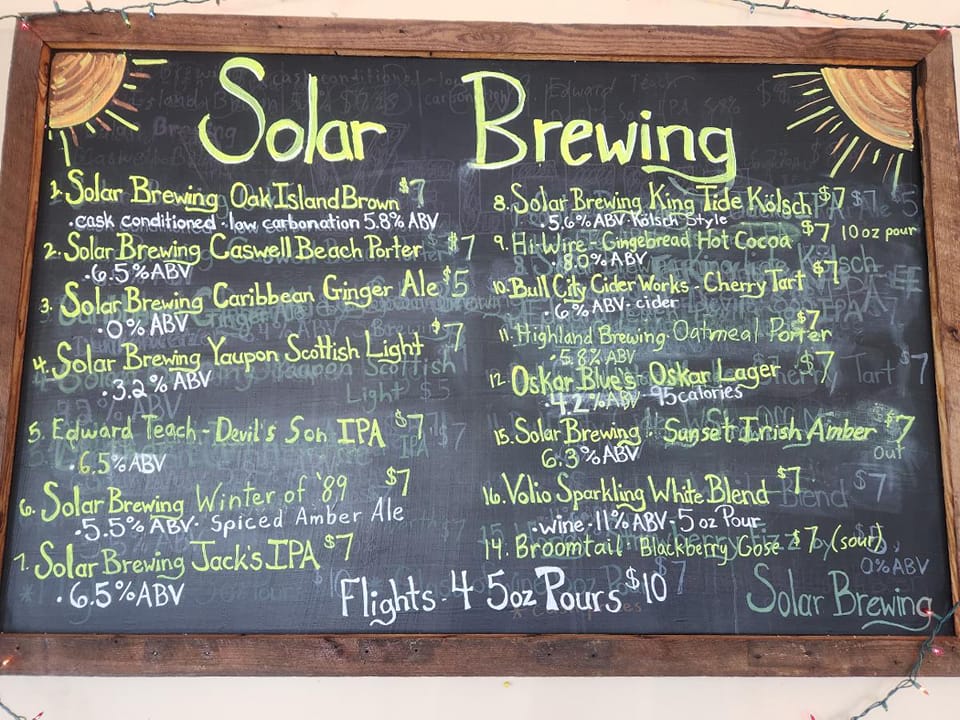 Solar Brewing
1. Solar Brewing Oak Island Brown $7
• cask conditioned • low carbonation 5.8% ABV
2. Solar Brewing Caswell Beach Porter $7
• 6.5% ABV
3. Solar Brewing Caribbean Ginger Ale $5
• 0% ABV
4. Solar Brewing Yaupon Scottish Light $7
• 3.2% ABV
5. Edward Teach - Devil's Son IPA $7
• 6.5% ABV
6. Solar Brewing Winter of '89 $7
• 5.5% ABV • Spiced Amber Ale
7. Solar Brewing Jack's IPA $7
• 6.5% ABV
8. Solar Brewing King Tide Kölsch $7
• 5.6% ABV • Kölsch Style
9. Hi-Wire - Gingebread Hot Cocoa $7 10 oz pour
• 8.0% ABV
10. Bull City Cider Works - Cherry Tart $7
• 6% ABV • cider
11. Highland Brewing • Oatmeal Porter $7
• 5.8% ABV
12. Oskar Blue's Oskar Lager $7
4.2% ABV • 95 calories
15. Solar Brewing • Sunset Irish Amber $7
6.3% ABV out
16. Volio Sparkling White Blend $7
• wine • 11% ABV • 5 oz Pour
14. Broomtail • Blackberry Gose $7 (sour)
0% ABV
Flights - 4 5oz Pours $10
Solar Brewing